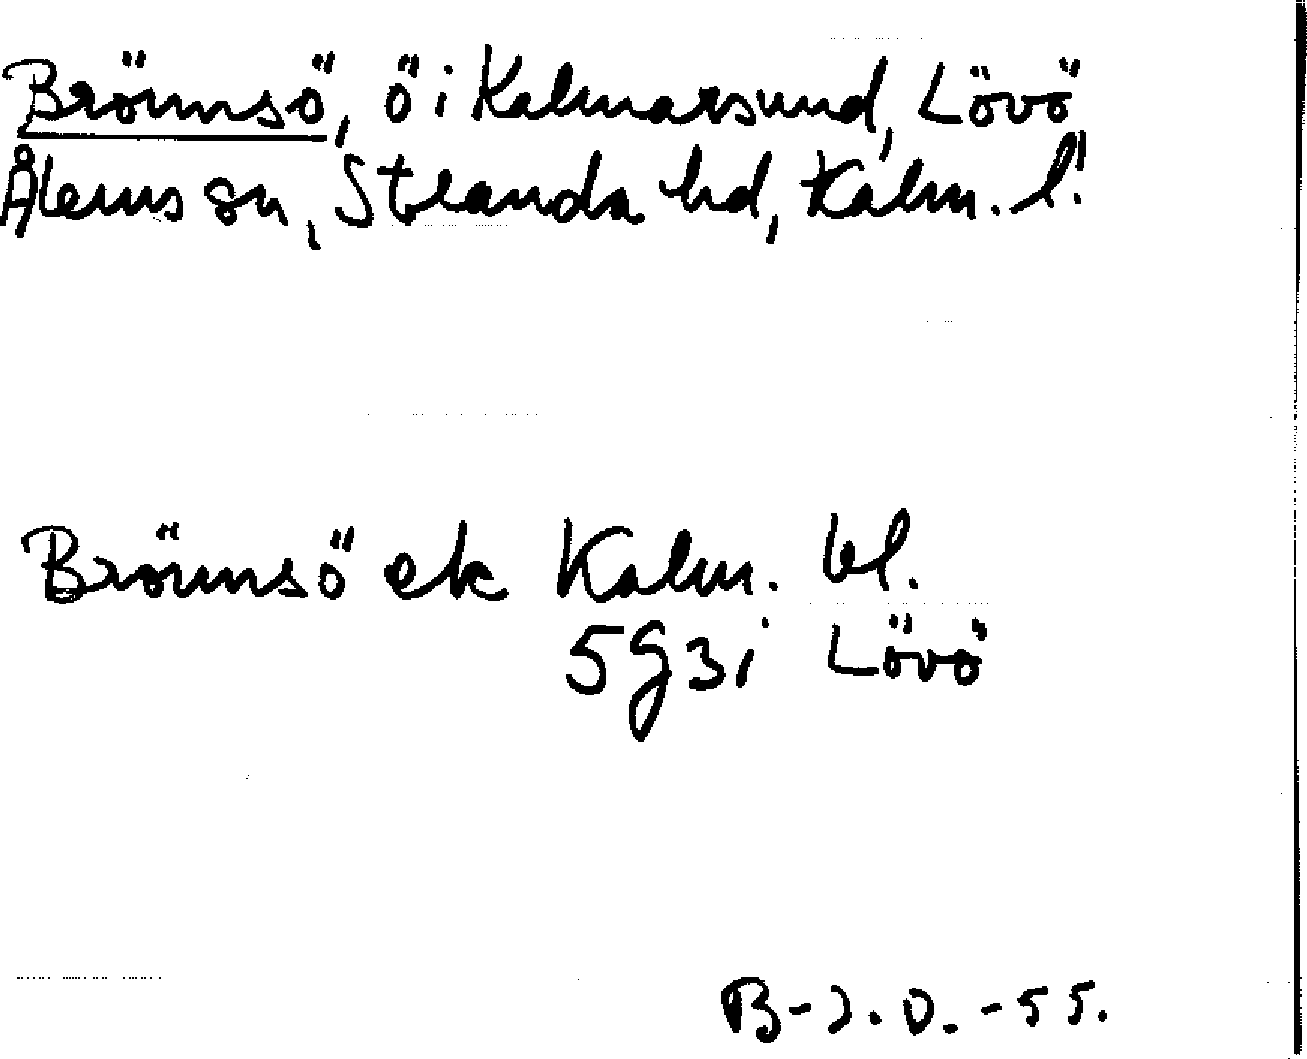 Brömsö, ö i Kalmarsund, Lövö
Ålems sn, Stranda hd, Kalm. l.
Brömsö ek Kalm. bl.
5G3i Lövö
B-J.O.-55.